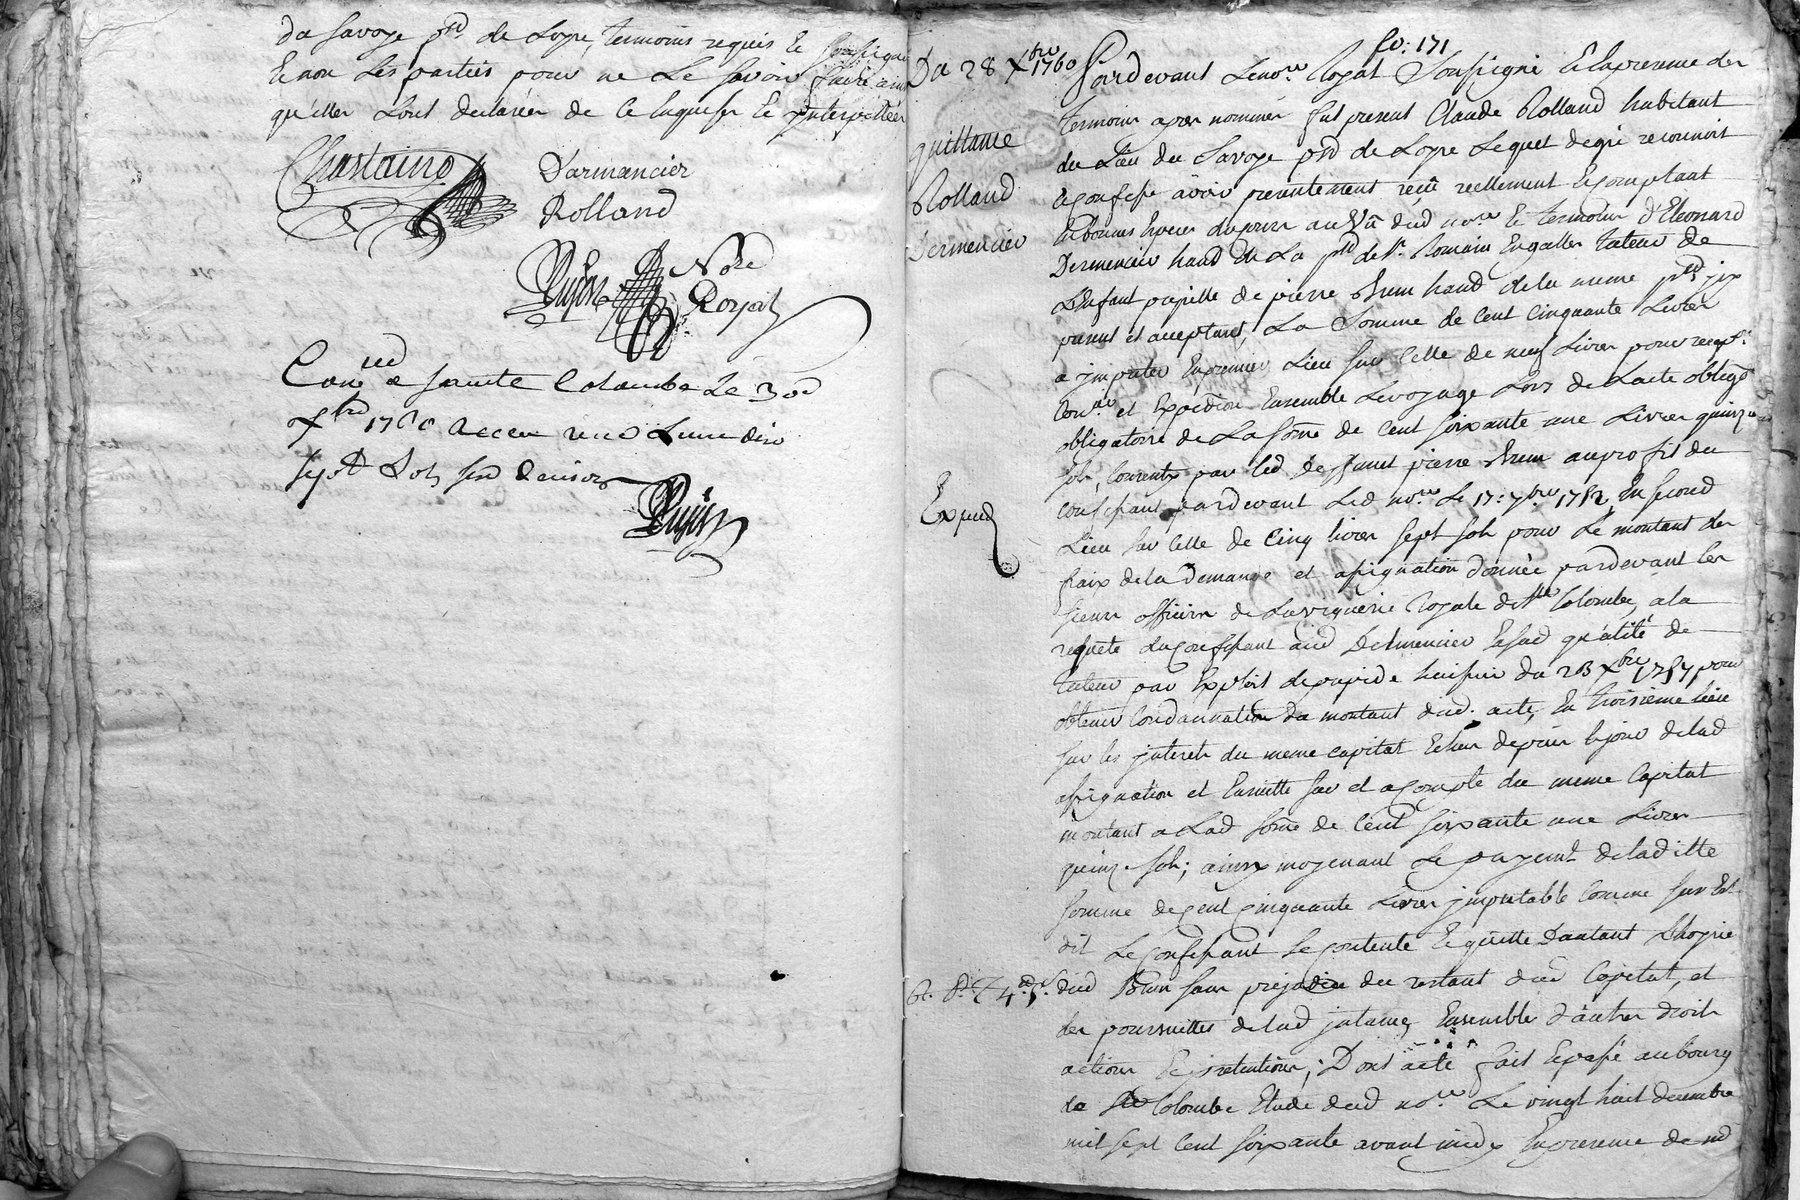 du Savoye psse de Loyre, temoins requis le soussigné
Et non Les parties pour ne Le savoir faire ainsi
qu'elles L'ont declarées de ce Enquises Et Interpellées
Chastaing Darmancier
Rolland
Nore
Royal
Conlé a sainte Colombe Le 30e
Xbre 1760 Recu une Livre dix
sept sols six deniers
fo: 171
Du 28 Xbre 1760
quittance
Rolland
Dermencier
Expedié
Pardevant Lenore Royal Soussigné Et En presence des
temoins apres nommés fut present Claude Rolland habitant
du Lieu du Savoye psse de Loyre Lequel de gré reconnoit
Et confesse avoir presentement reçû reellement Et comptant
En bonnes Especes du jour au Vû dud nore Et temoins d'Eleonard
Dermencier habd de La psse de st Romain En galles tuteur de
L'Enfant pupille de pierre Brun habd de la meme psse, icy
present et acceptant, La Somme de Cent Cinquante Livres
a imputer En premier Lieu sur Celle de neuf Livres pour recepn
Conle et Expedition Ensemble Le voyage Lors de L'acte obligé
obligatoire de La some de Cent soixante une Livres quinze
sols, Consenty par led deffunt pierre Brun au profit du
confessant pardevant Led nore Le 17: 7bre 1752, En second
Lieu sur Celle de Cinq livres sept sols pour Le montant des
fraix de la demande et assignation donnée pardevant les
sieurs officiers de La viguerie Royale de Ste Colombe, a la
requete du confessant aud Dermencier En sad qualité de
tuteur par Exploit de huissier du 28 Xbre 1757 pour
obtenir Condamnation du montant dud. acte, En troisieme lieu
sur les interets du meme capital Echus depuis le jour de lad
assignation et Ensuitte sur et a compte du meme Capital
montant a Lad some de Cent soixante une Livres
quinze sols; ainsy moyenant Le payemt de laditte
somme de Cent Cinquante Livres imputable Comme sus Est
dit Le Confessant se contente Et quitte D'autant L'hoyrie
dud Brun sans prejudice du restant dud Capital, et
des poursuittes de lad instance, Ensemble d'autres droits
actions Et pretentions; Dont acte fait Et passé au bourg
de Ste Colombe Etude dud nore Le vingt huit decembre
mil sept Cent soixante avant midy En presence de md